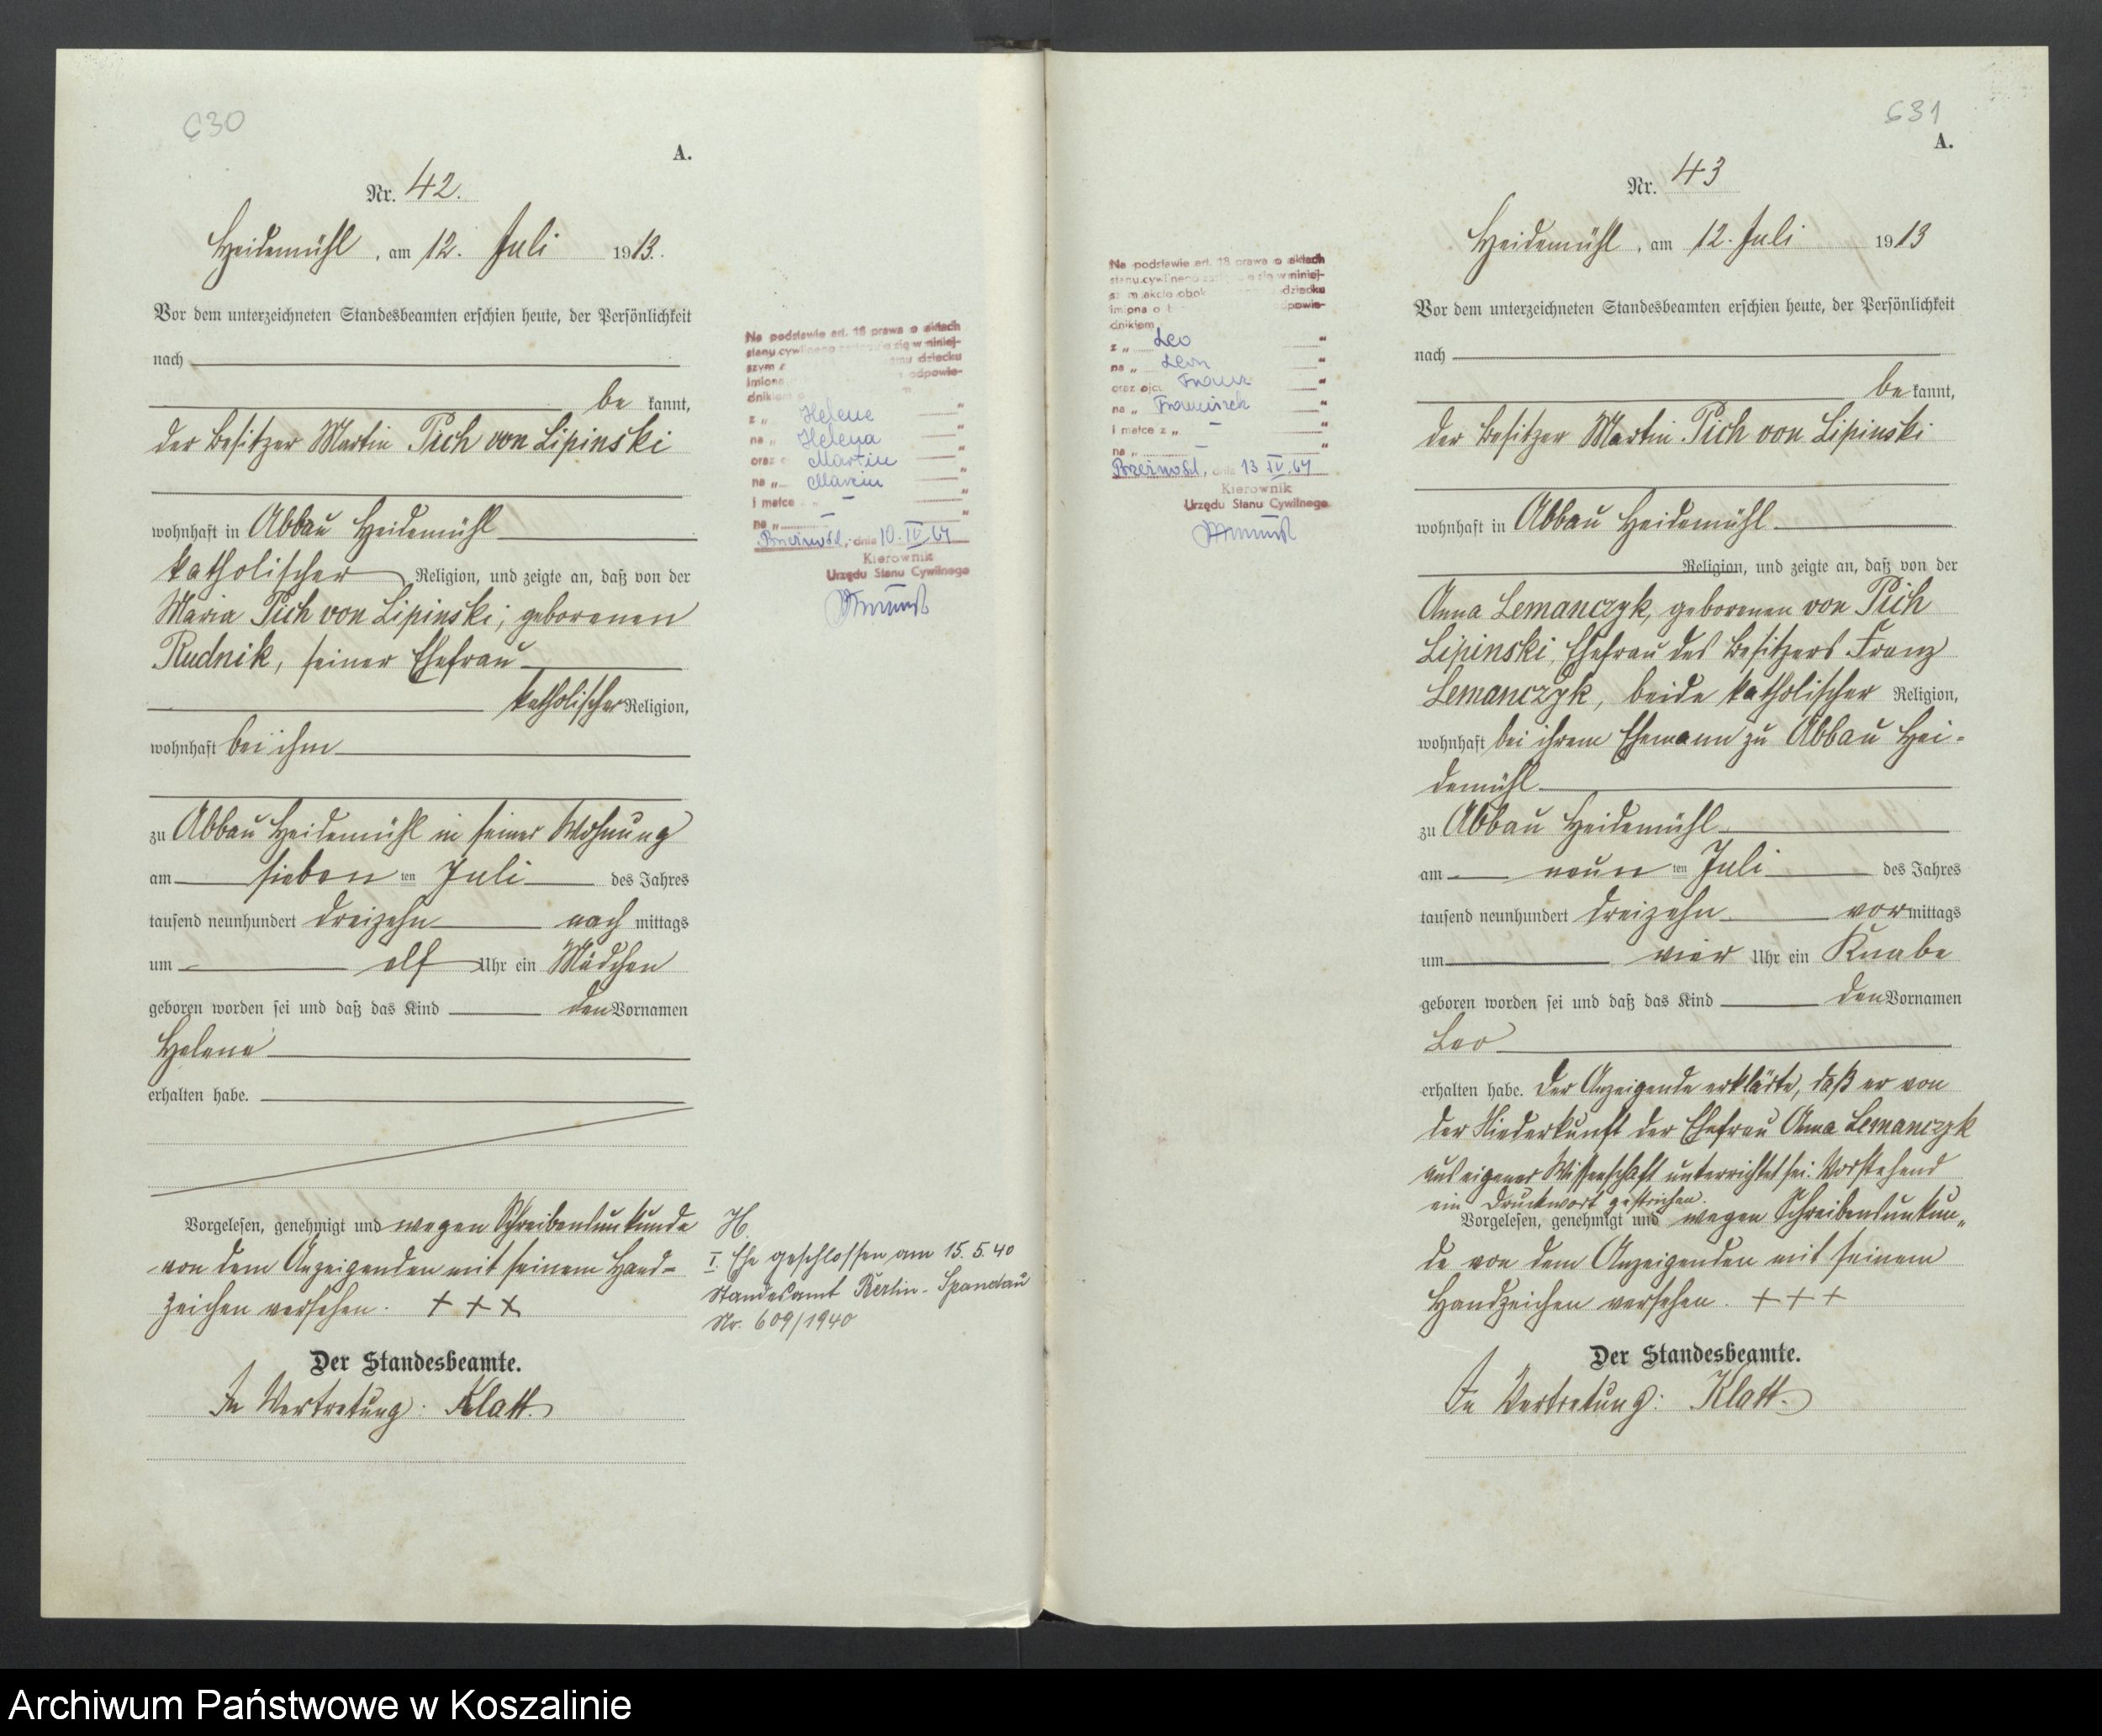 630
A.
Nr. 42.
Heidemühl, am 12. Juli 1913.
Vor dem unterzeichneten Standesbeamten erschien heute, der Persönlichkeit
nach
be kannt,
der Besitzer Martin Pich von Lipinski
wohnhaft in Abbau Heidemühl
katholischer Religion, und zeigte an, daß von der
Maria Pich von Lipinski, geborenen
Rudnik, seiner Ehefrau
katholischer Religion,
wohnhaft bei ihm
zu Abbau Heidemühl in seiner Wohnung
am sieben ten Juli des Jahres
tausend neunhundert dreizehn nach mittags
um elf Uhr ein Mädchen
geboren worden sei und daß das Kind den Vornamen
Helene
erhalten habe.
Vorgelesen, genehmigt und wegen Schreibensunkunde
von dem Anzeigenden mit seinem Hand-
zeichen versehen. + + +
Der Standesbeamte.
In Vertretung: Klatt.
Na podstawie art. 18 prawa o aktach
stanu cywilnego się w niniej-
szym dziecku
imiona odpowie-
dnikiem
z „ Helene "
na „ Helena "
oraz Martin "
na „ Marcin "
i matce – "
na „ – "
dnia 10. IV 64
Kierownik
Urzędu Stanu Cywilnego
H.
I. Ehe geschlossen am 15. 5. 40
Standesamt Berlin-Spandau
Nr. 609/1940
631
A.
Nr. 43
Heidemühl, am 12. Juli 1913
Vor dem unterzeichneten Standesbeamten erschien heute, der Persönlichkeit
nach
be kannt,
der Besitzer Martin Pich von Lipinski
wohnhaft in Abbau Heidemühl
Religion, und zeigte an, daß von der
Anna Lemanczyk, geborenen von Pich
Lipinski, Ehefrau des Besitzers Franz
Lemanczyk, beide katholischer Religion,
wohnhaft bei ihrem Ehemann zu Abbau Hei-
demühl
zu Abbau Heidemühl
am neun ten Juli des Jahres
tausend neunhundert dreizehn vor mittags
um vier Uhr ein Knabe
geboren worden sei und daß das Kind den Vornamen
Leo
erhalten habe. Der Anzeigende erklärte, daß er von
der Niederkunft der Ehefrau Anna Lemanczyk
aus eigener Wissenschaft unterrichtet sei. Vorstehend
ein Druckwort gestrichen.
Vorgelesen, genehmigt und wegen Schreibensunkun-
de von dem Anzeigenden mit seinem
Handzeichen versehen. + + +
Der Standesbeamte.
In Vertretung: Klatt.
Na podstawie art. 18 prawa o aktach
stanu cywilnego się w niniej-
szym akcie obok dziecku
imiona odpowie-
dnikiem
z „ Leo "
na „ Leon "
oraz ojcu Franz "
na „ Franciszek "
i matce z „ – "
na „ – "
dnia 13 IV. 64
Kierownik
Urzędu Stanu Cywilnego
Archiwum Państwowe w Koszalinie